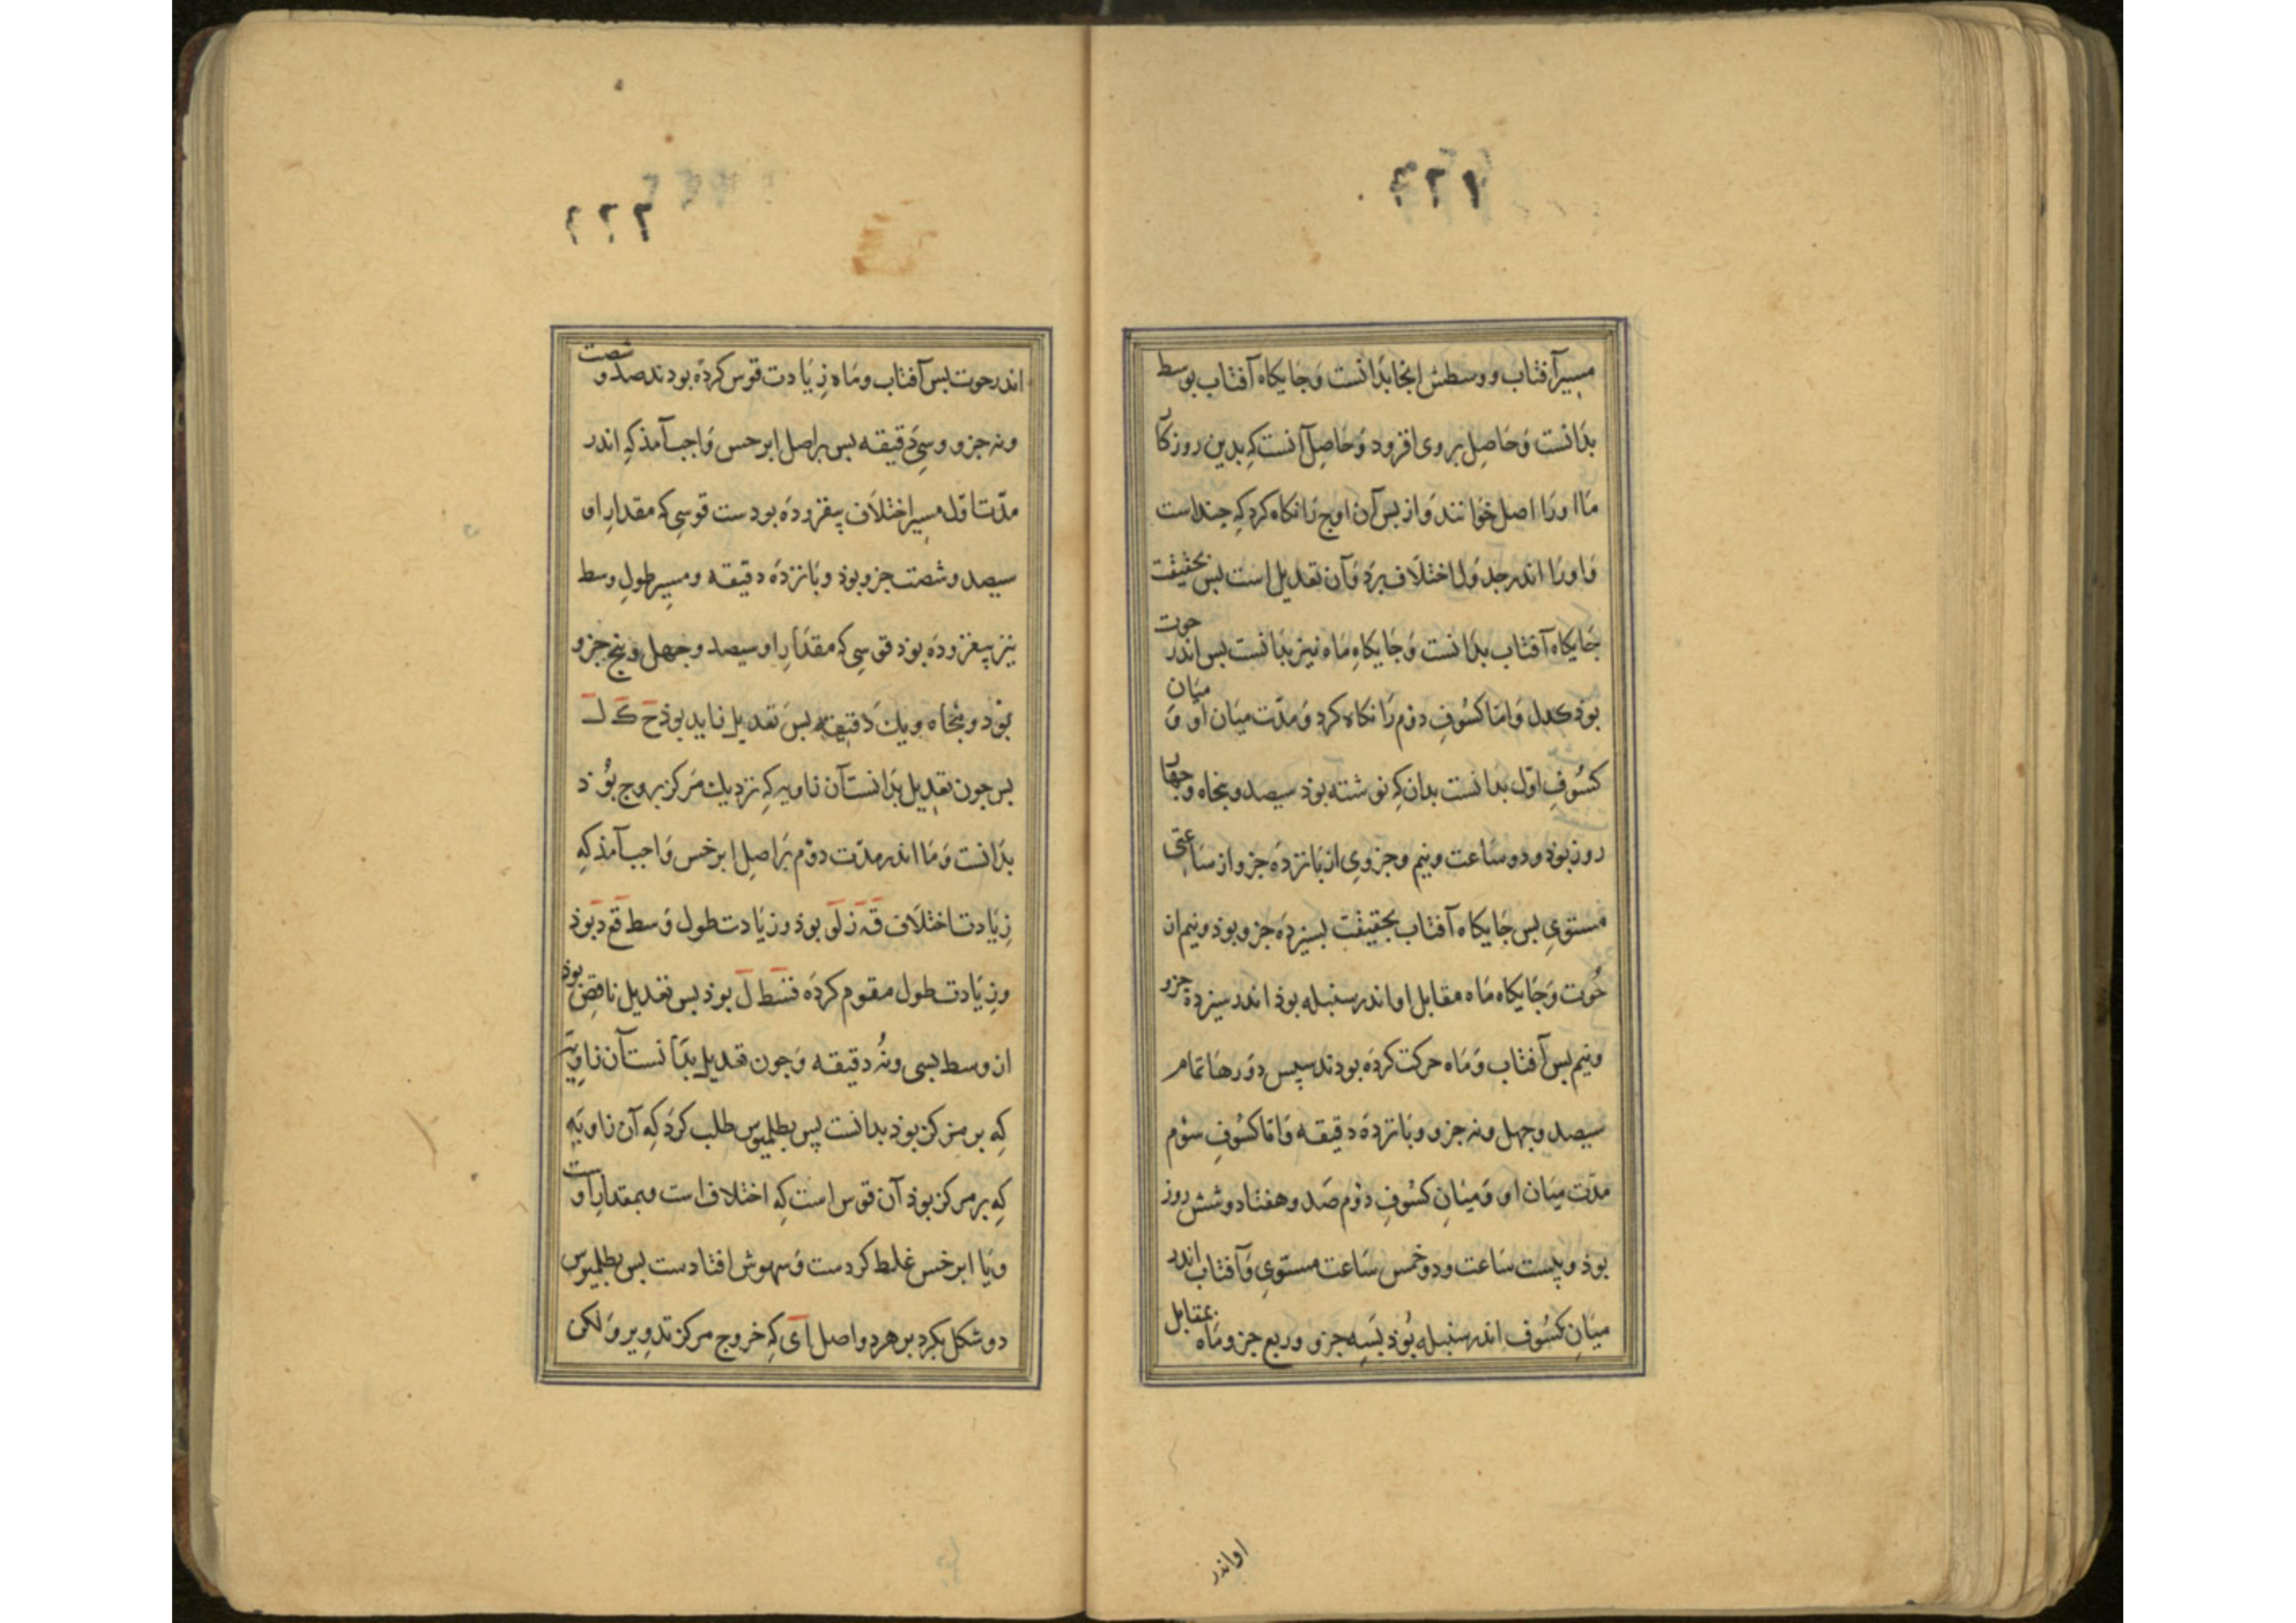 ۴۲۱
مسیر آفتاب و وسطش اینجا بدانست وَجَایکاه آفتاب بوسط
بدَانست وَحَاصِل بروی افزود وَحَاصِل آنست کِه بدین روزکار
مَا اورَا اصل خوَانند وَاز بس آن اوج رَا نکاه کرد کِه جند است
وَاورَا اندر جدوَل اختلَاف برَد وَآن تعدیل است بس بحقیقت
جَایکاه آفتاب بدَانست وَجَایکَاهِ مَاه نیز بدَانست بس اندر حوت
بوذ کدل وَامّا کسُوفِ دوُم رَا نکاه کرد وَمدّت میَان او وَ میَان
کسُوفِ اوّل بدَانست بدان کِه نوشته بوذ سیصد و بنجاه وجهار
روز بوذ و دو سَاعت و نیم و جزوی از بَانزدَه جزو از سَاعتی
مستوِی بس جَایکاه آفتاب بحقیقت بسیزدَه جزو بوذ و نیم از
حُوت وَجَایکاه مَاه مقابل او اندر سنبله بوذ اندر سیزدَه جزو
و نیم بس آفتاب وَمَاه حرکت کردَه بودند سپس دَورهَا تمام
سیصد و جهل و نه جزو و بَانزدَه دقیقه وَامّا کسُوفِ سوُم
مدّت میَان او وَمیَانِ کسُوفِ دوُم صَد و هفتاد و شش روز
بوذ و بیست سَاعت و دو خمس سَاعت مستوِی وَآفتاب اندر
میَانِ کسُوف اندر سنبله بُوذ بسِه جزو و ربع جزو و مَاه بمقابل
او اندر
۴۲۲
اندر حوت بس آفتاب و مَاه زِیَادت قوس کردَه بودند صد و شصت
و نه جزو و سِی دَقیقه بس بر اصل ابرخس وَاجب آمذ کِه اندر
مدّت اوّل مسِیر اختلَاف بیفزودَه بودست قوسِی که مقدارِ او
سیصد و شصت جزو بوذ و بَانزدَه دقیقه و مسِیرِ طولِ وسط
نیز بیفزودَه بوذ قوسِی کِه مقدَارِ او سیصد و جهل و بنج جزو
بوذ و بنجاه و یك دَقیقه بس تعدیل زاید بوذ حَ کَ لَ
بس جون تعدِیل بدَانست آن زاویه کِه نزدیك مَرکز بروج بوُذ
بدَانست وَمَا اندر مدّت دوُم بَر اصلِ ابرخس وَاجب آمذ کِه
زِیَادت اختلَاف قَہ زَ لَو بوذ و زیَادت طول وَسط قَع دَ بوذ
و زِیَادت طول مقوم کردَه قسَط لَ بوذ بس تعدیل ناقص بوذ
از وسط بسی و نُه دقیقه وَجون تعدیل بدَانست آن زاوِیَه
کِه بر مرکز بوذ بدانست پس بطلمیوس طلب کرَد کِه آن زاویَه
کِه بر مرکز بوذ آن قوس است کِه اختلاف است و بمقدارِ اوست
وَیَا ابرخس غلط کردست وَسهوش افتادست بس بطلمیوس
دو شکل بکرد بر هر دو اصل اَی کِه خروج مرکز تدوِیر وَلکن